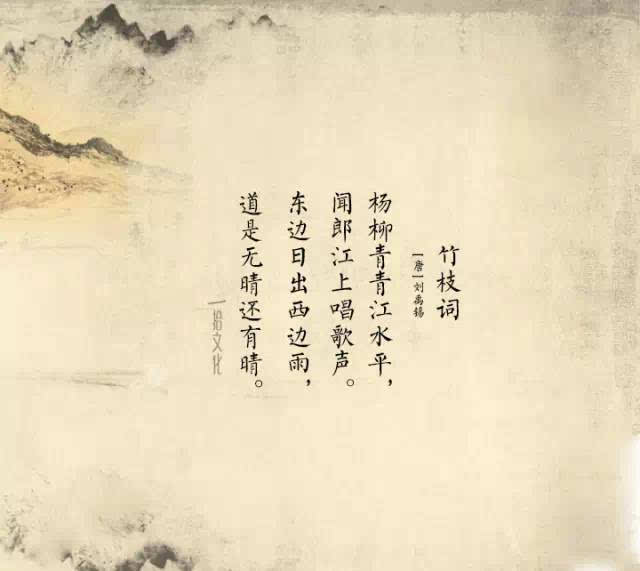 竹枝词
[唐]刘禹锡
杨柳青青江水平，
闻郎江上唱歌声。
东边日出西边雨，
道是无晴还有晴。
一拾文化